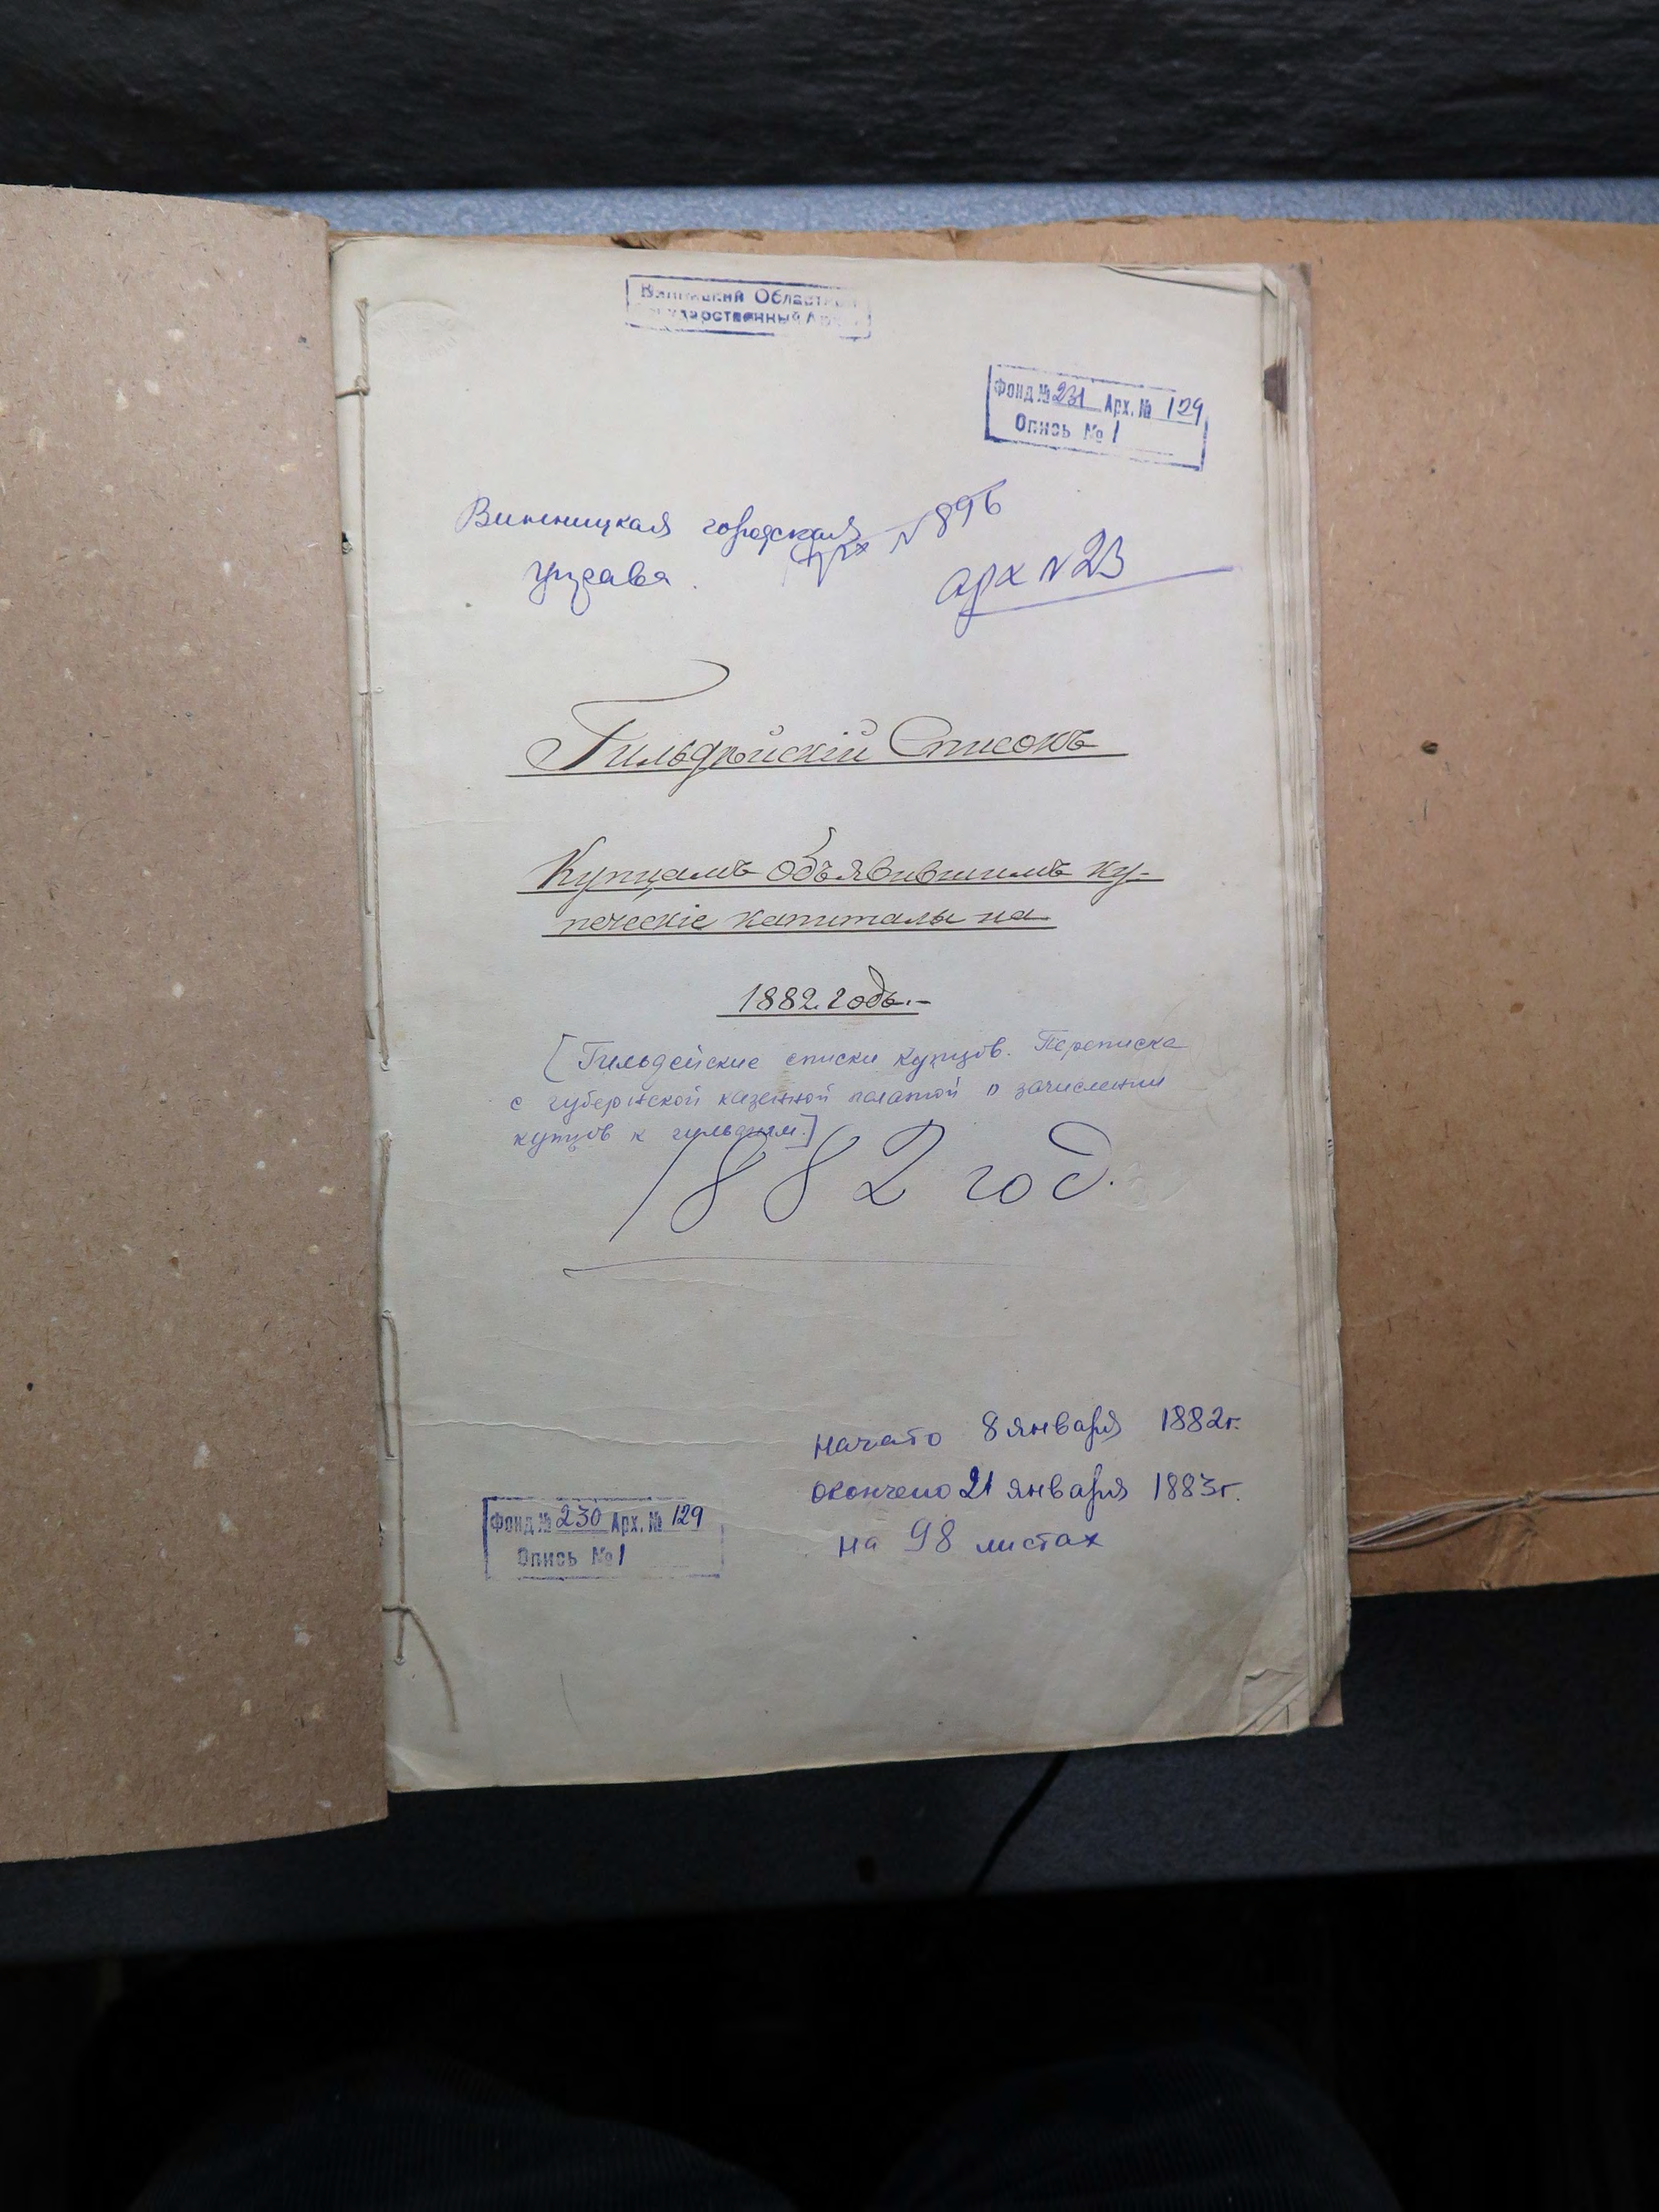 Винницкий Областной
Государственный Архив
Фонд № 231 Арх. № 129
Опись № 1
Винницкая городская
управа.
Арх № 896
арх № 23
Гильдѣйскій Списокъ
Купцамъ объявившимъ ку-
печескіе капиталы на
1882 годъ.-
[Гильдейские списки купцов. Переписка
с губернской казенной палатой о зачислении
купцов к гильдиям.]
1882 год.
начато 8 января 1882г.
окончено 21 января 1883г.
на 98 листах
Фонд № 230 Арх. № 129
Опись № 1